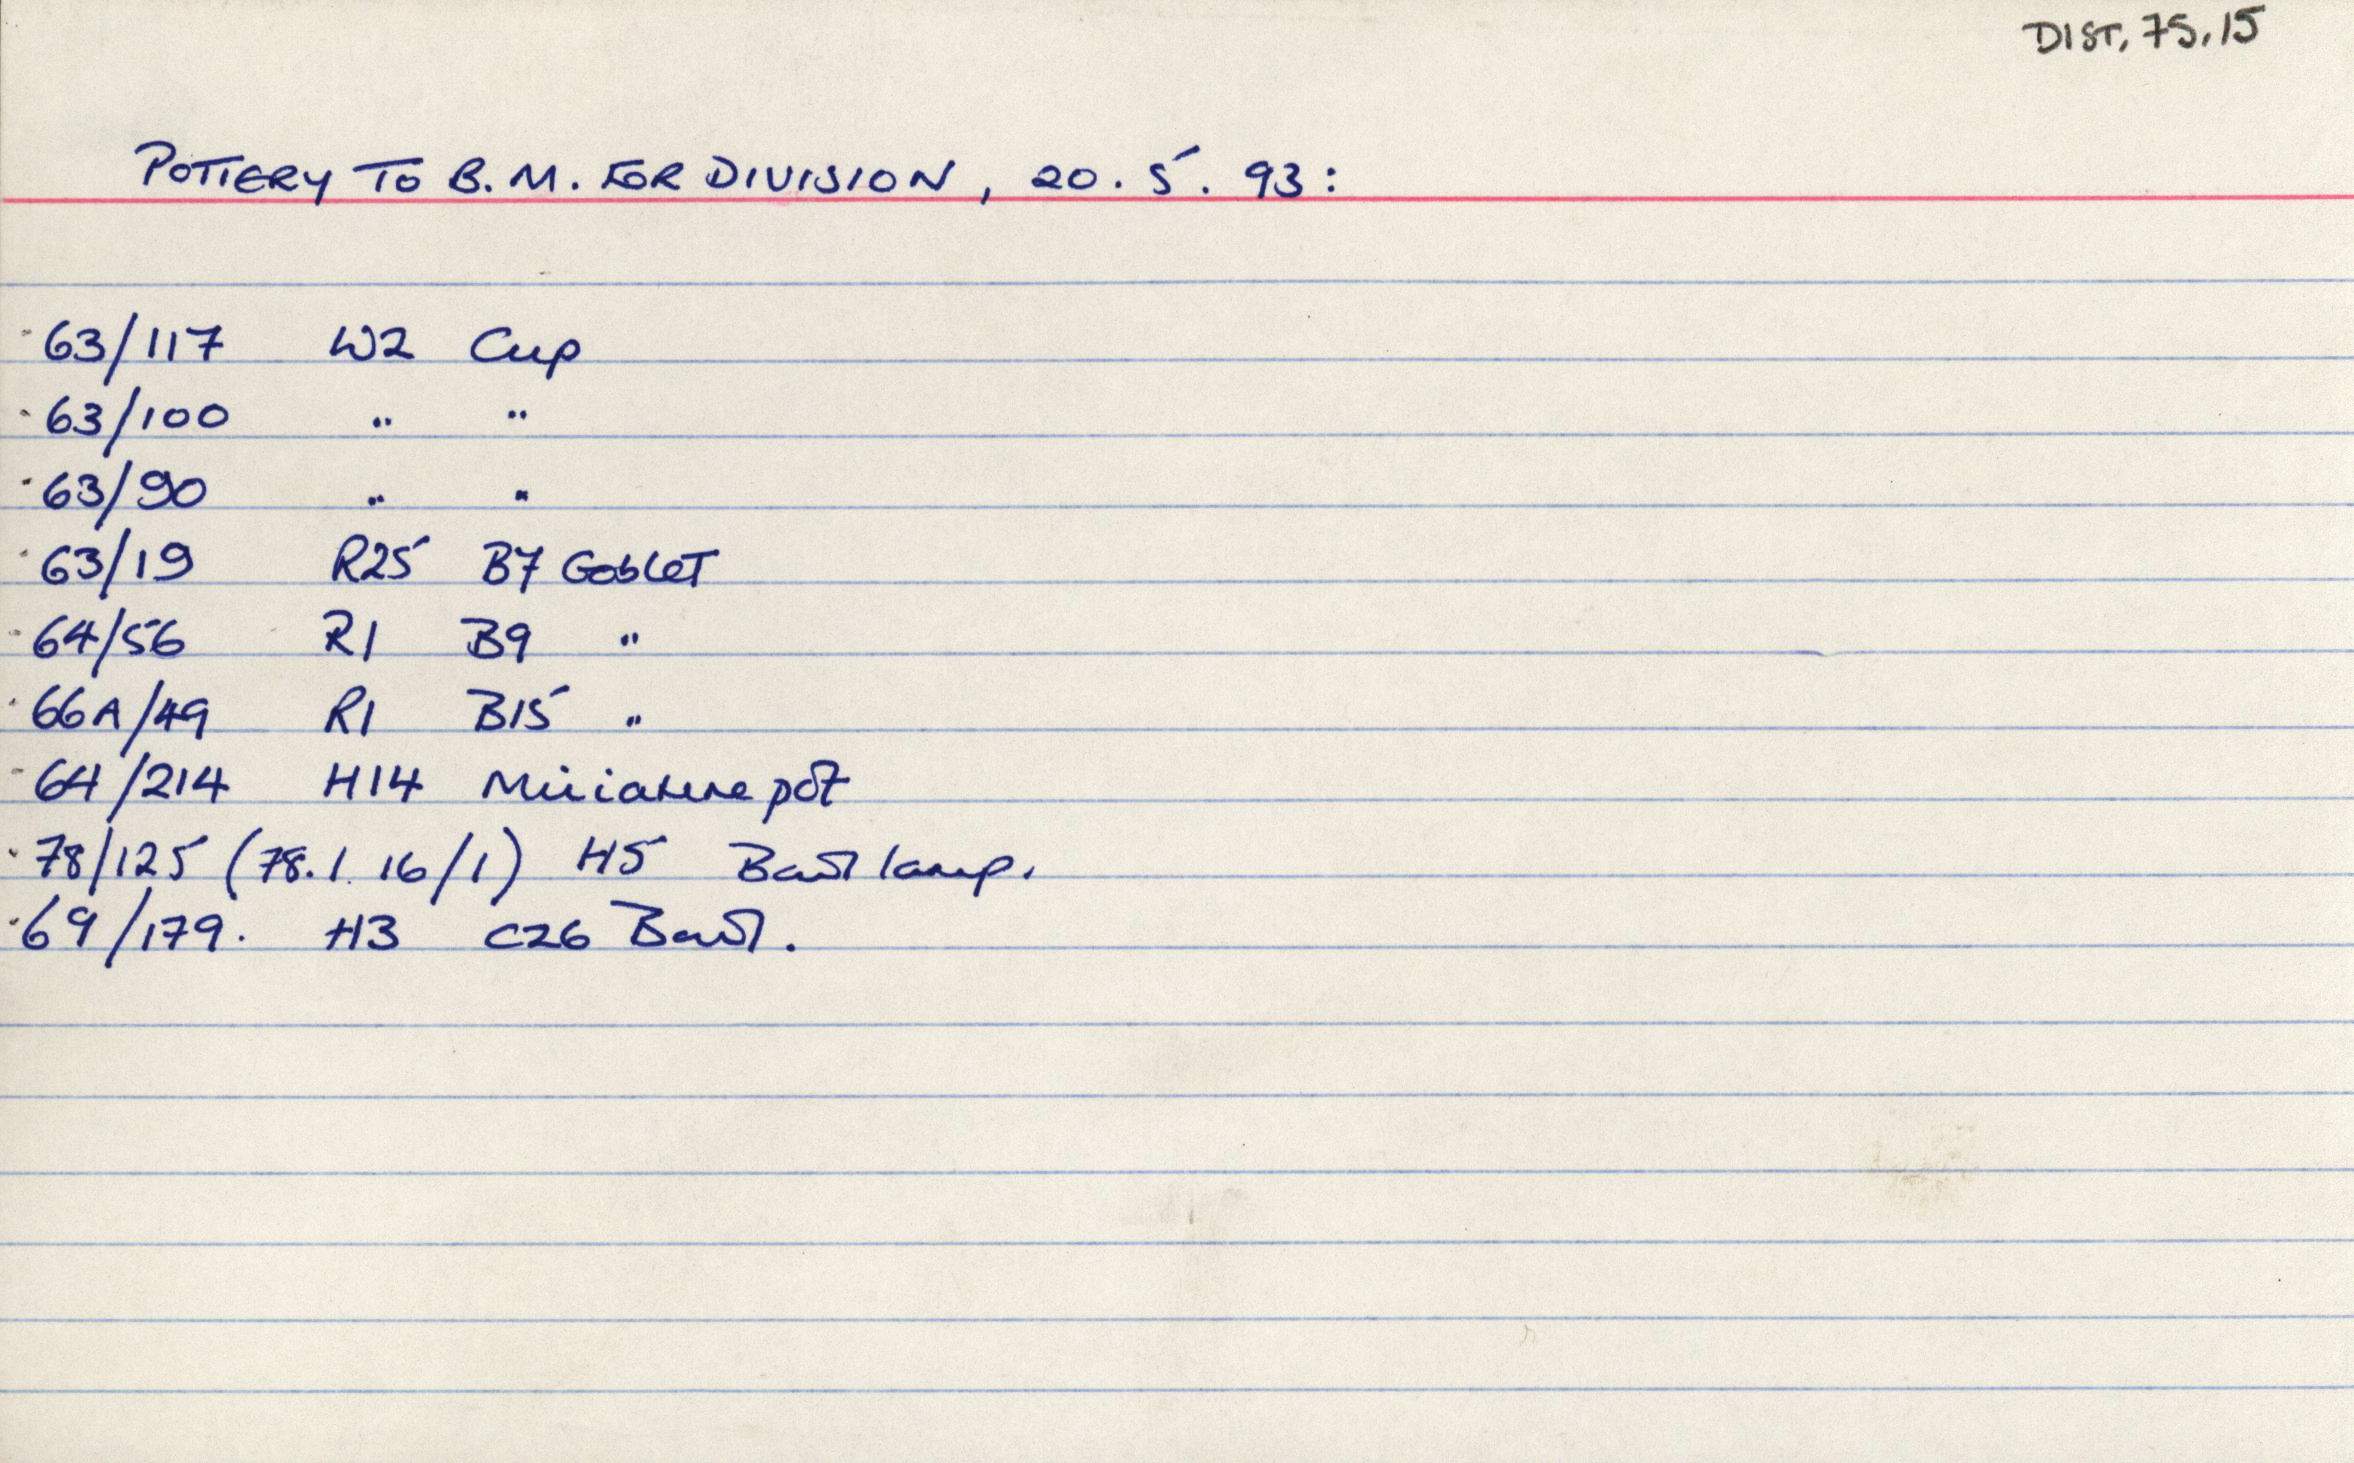 DIST. 75.15
POTTERY TO B.M. FOR DIVISION, 20.5.93:
63/117 W2 Cup
63/100 " "
63/90 " "
63/19 R25 B7 Goblet
64/56 R1 B9 "
66A/49 R1 B15 "
64/214 H14 Miniature pot
78/125 (78.1.16/1) H5 Bowl lamp.
69/179. H3 C26 Bowl.